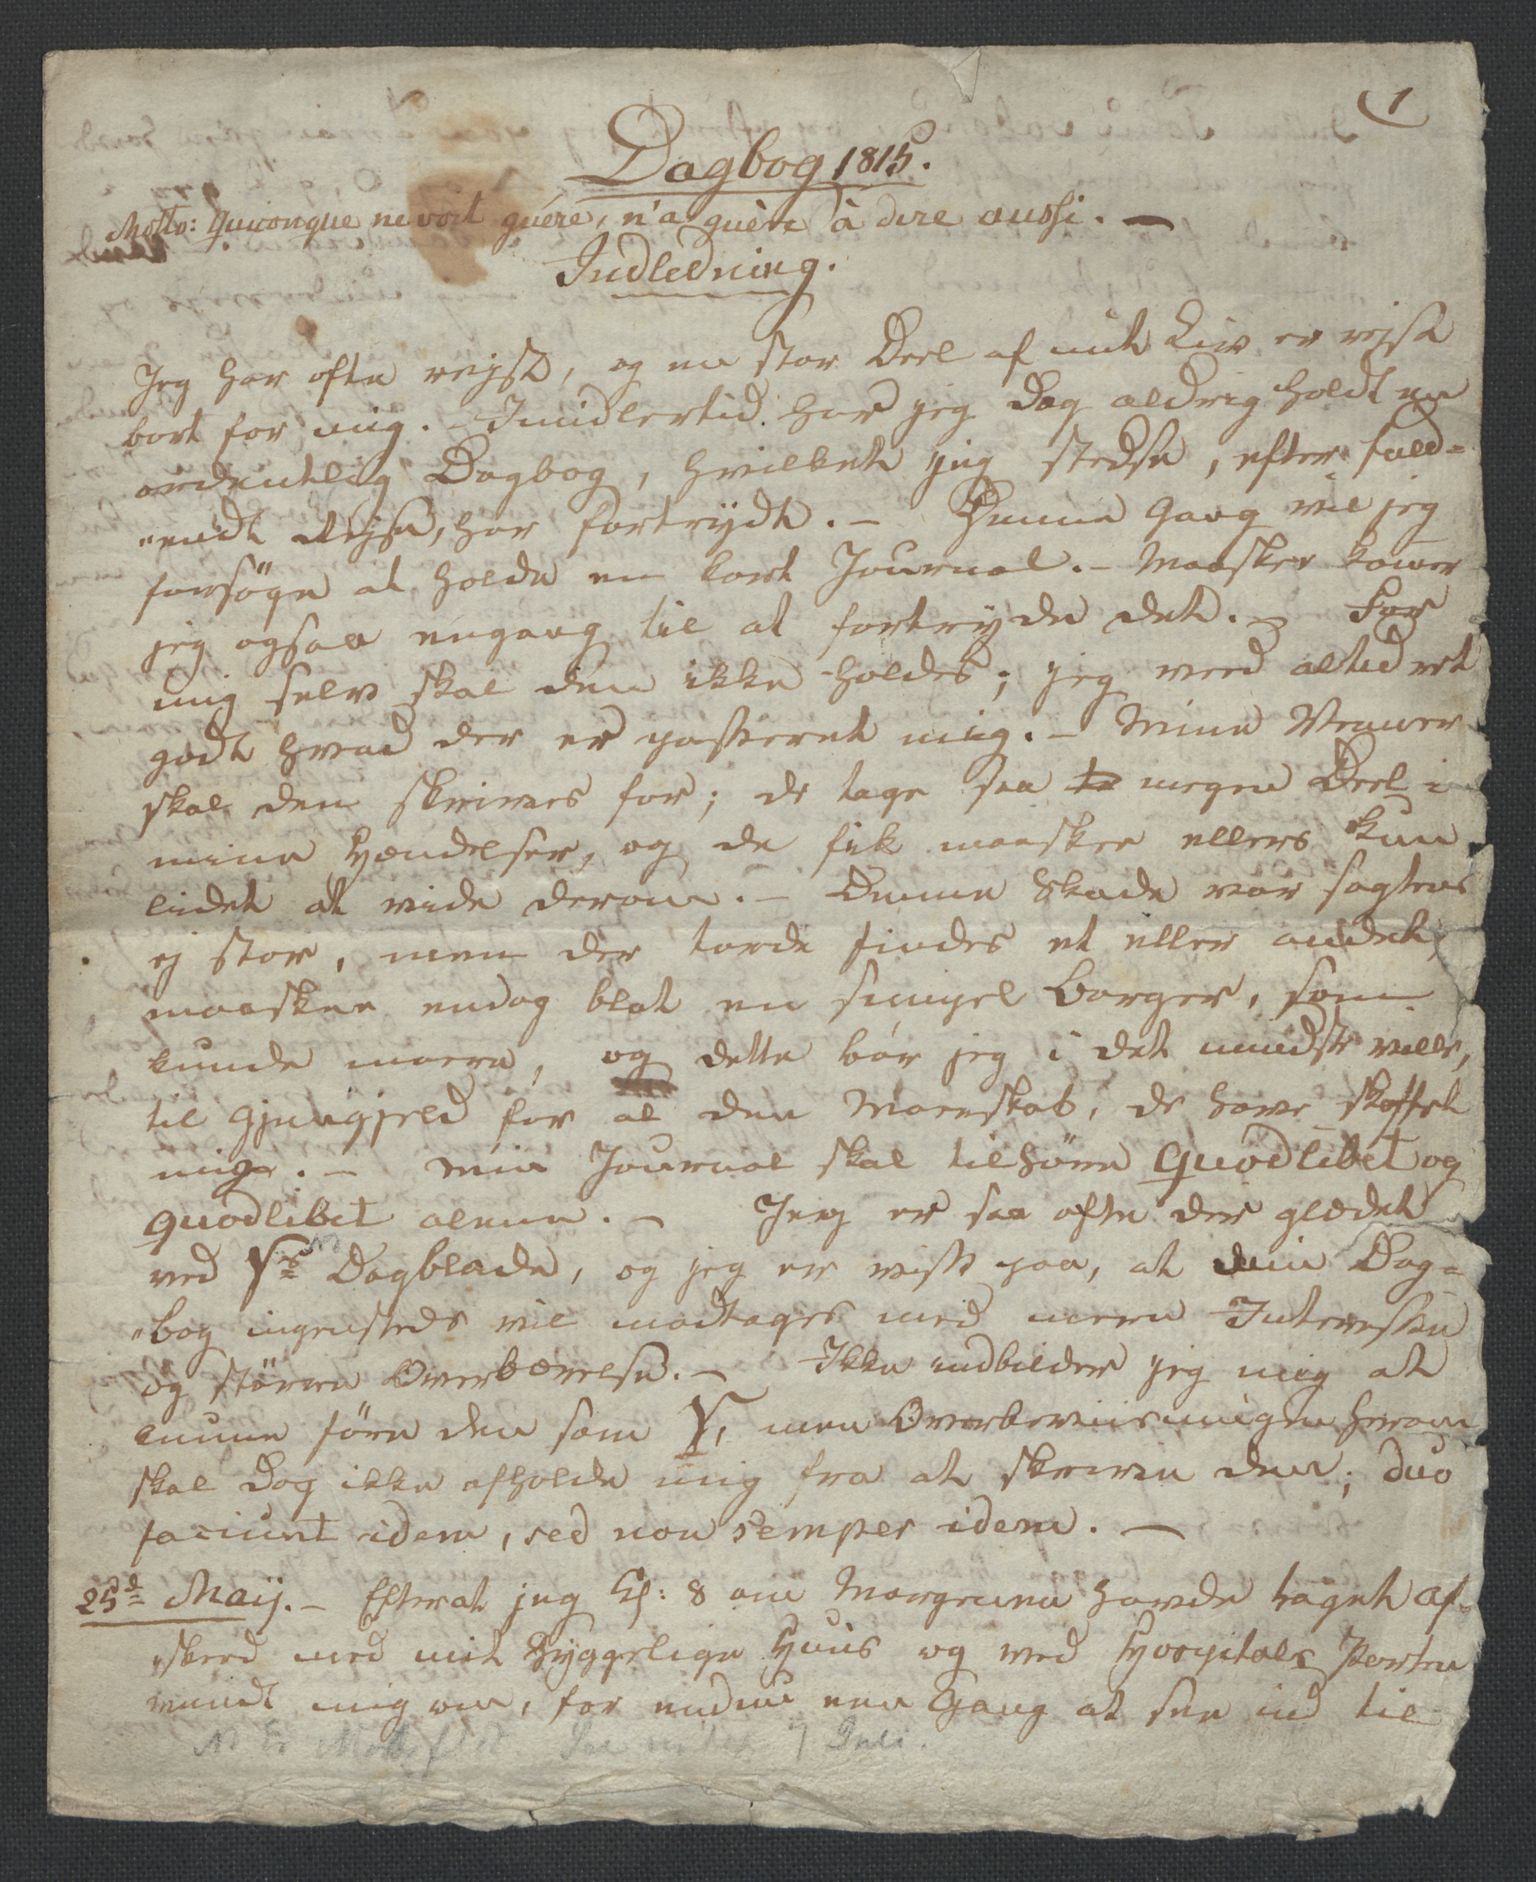 1
Dagbog 1815.
Motto: Quiconque ne voit guére, n'a guère à dire aussi. —
Indledning.
Jeg har ofte rejst, og en stor Deel af mit Liv er rejst
bort for mig. – Imidlertid har jeg dog aldrig holdt en
ordentlig Dagbog, hvilket jeg stedse, efter fuld-
„endt Rejse, har fortrydt. – Denne Gang vil jeg
forsöge at holde en kort Journal. – Maaskee kommer
jeg ogsaa engang til at fortryde det. – For
mig selv skal den ikke holdes; jeg veed altid ret
godt hvad der er passeret mig. – Mine Venner
skal den skrives for; de tage saa megen Deel i
mine Hændelser, og de fik maaskee ellers kun
lidet at vide derom. – Denne Skade var sagtens
ej stor, men der torde findes et eller andet,
maaskee endog blot en simpel Borger, som
kunde more, og dette bör jeg i det mindste ville,
til Gjengjeld for al den Moerskab, de have skaffet
mig. – Min Journal skal tilhöre Quodlibet og
Quodlibet alene. – Jeg er saa ofte der glædet
ved Ys Dagblade, og jeg er vis paa, at min Dag-
„bog ingensteds vil modtages med mere Interesse
og större Overbærelse. – Ikke indbilder jeg mig at
kunne före den som Y, men Overbeviisningen herom
skal dog ikke afholde mig fra at skrive den; duo
faciunt idem, sed non semper idem. —
25d Maij. – Efterat jeg Kl: 8 om Morgenen havde taget Af-
„skeed med mit hyggelige Huus og ved Hospitals Porten
vendt mig om, for endnu een Gang at see ind til
7 Juli.